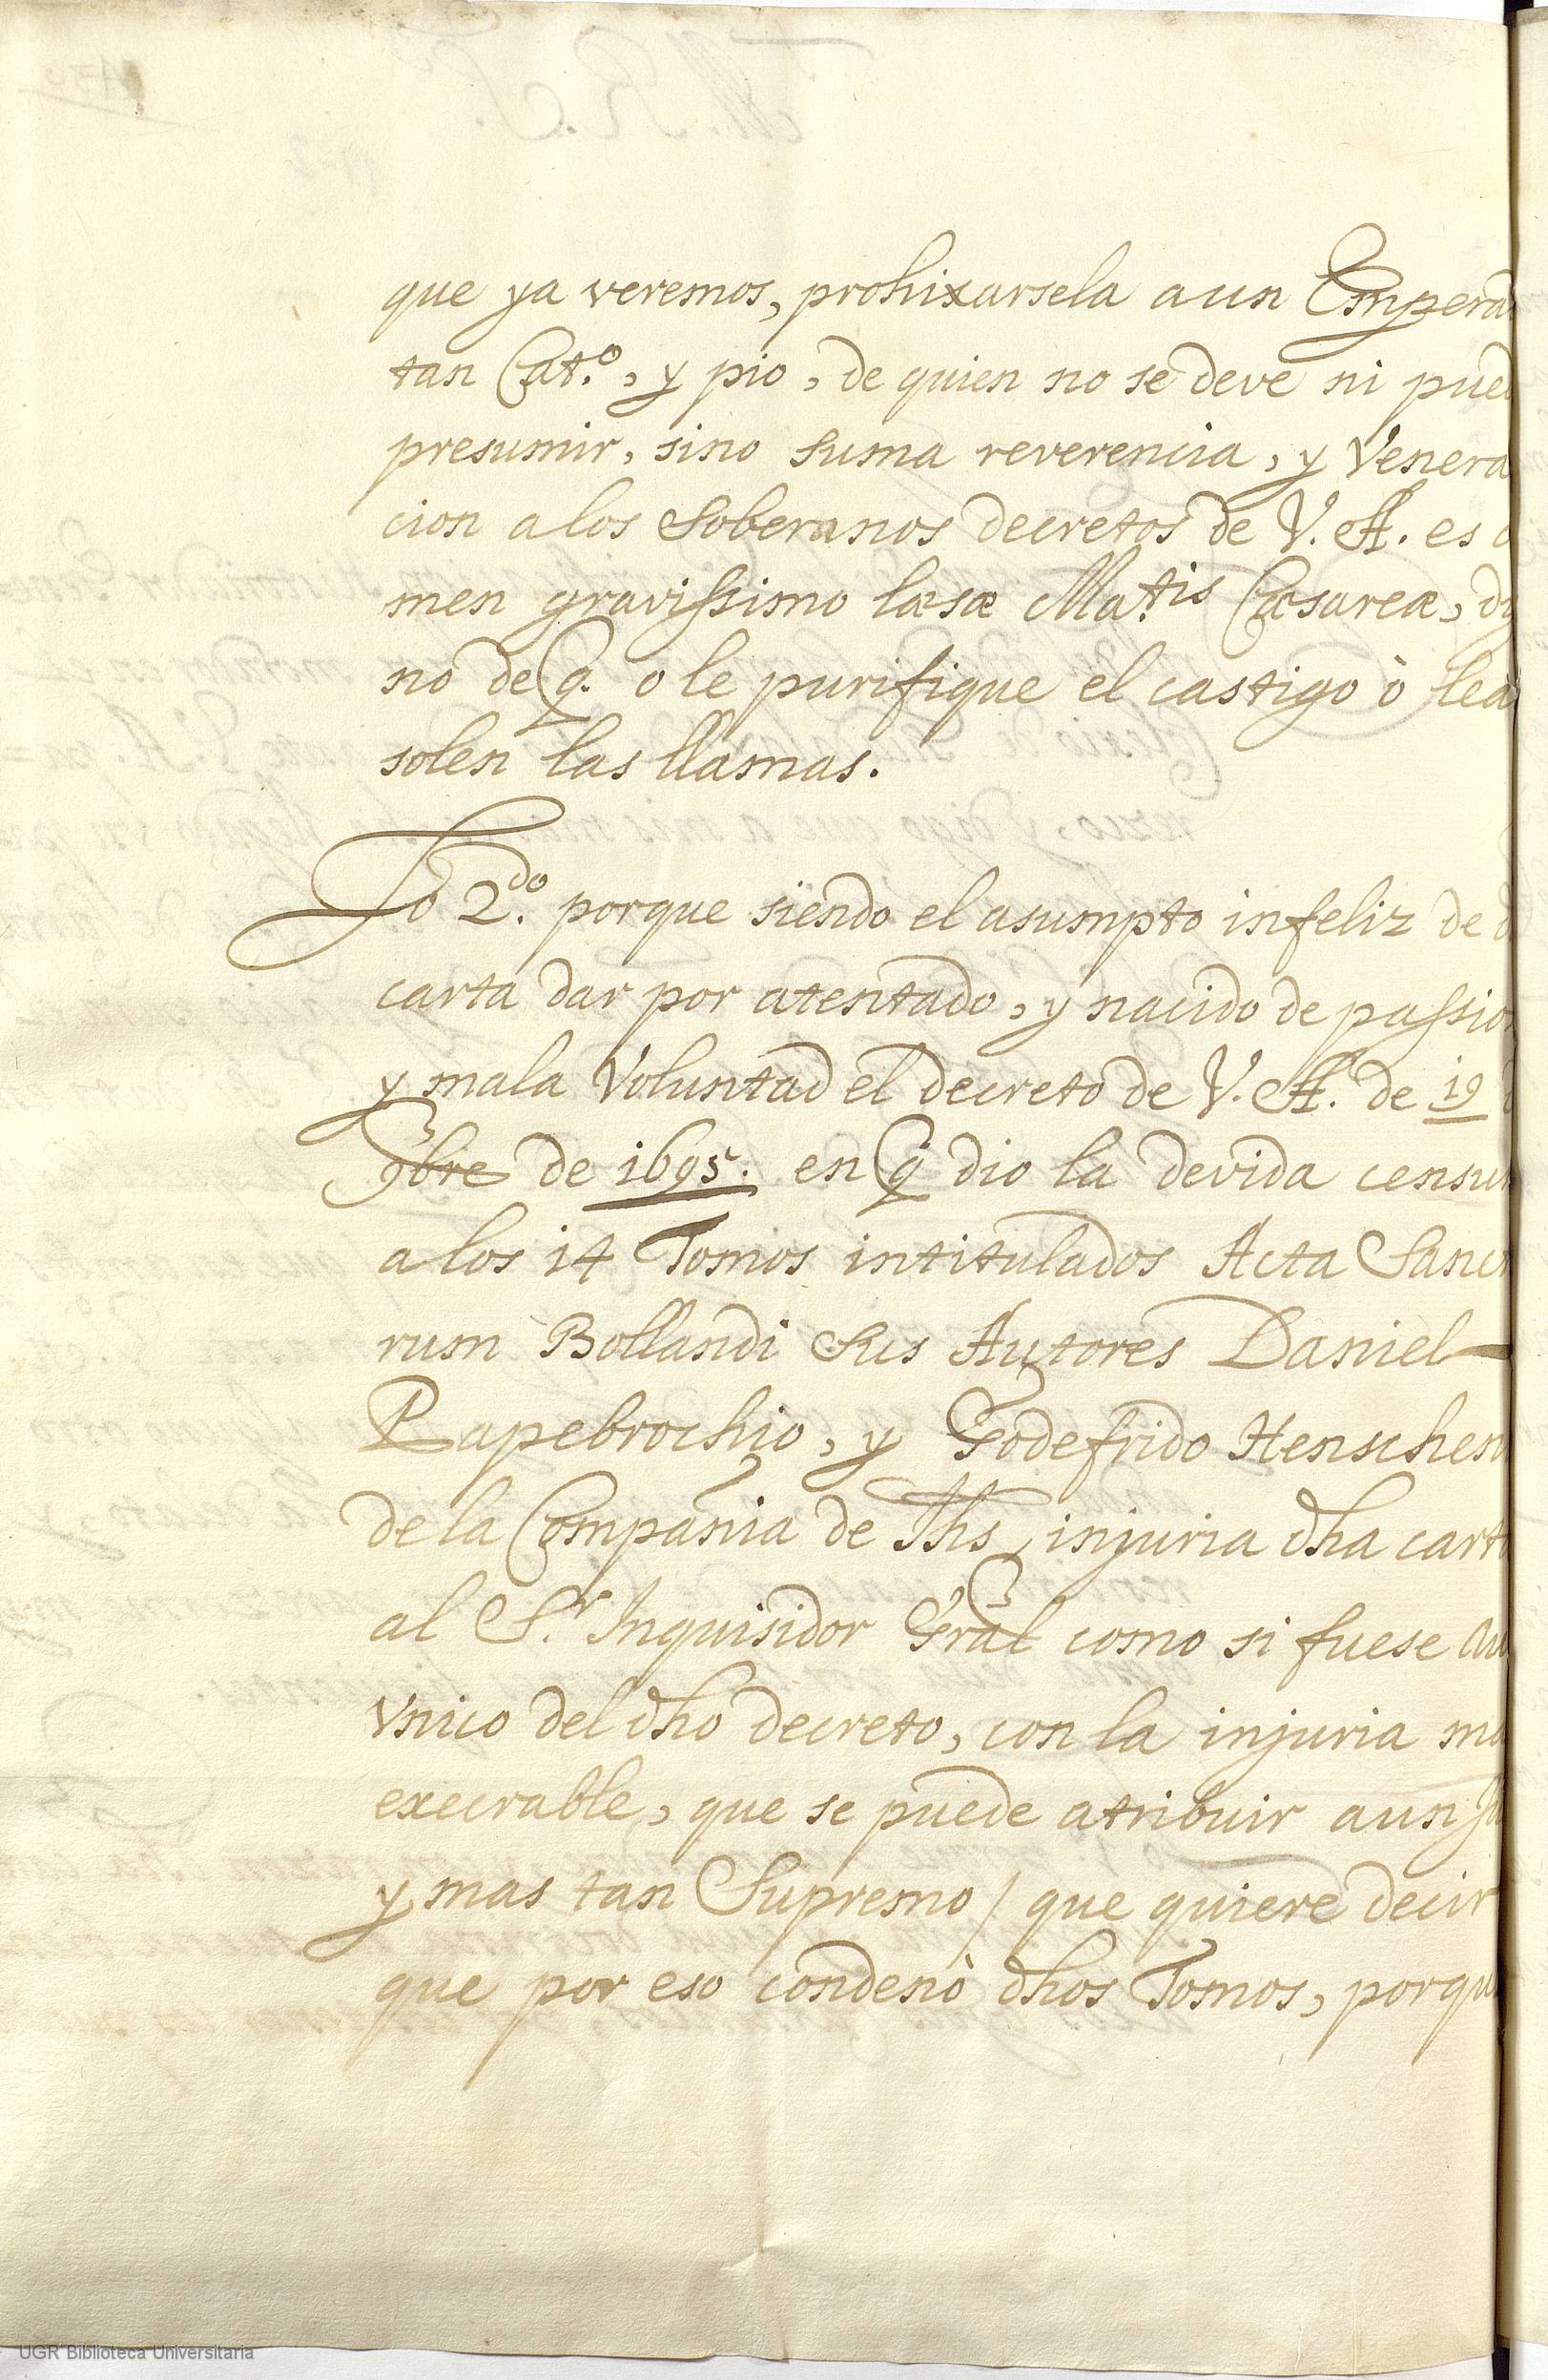 que ya veremos, prohixarsela a un Empera
tan Cat.º, y pio, de quien no se deve ni pued
presumir, sino suma reverencia, y Venera
cion a los Soberanos decretos de V. A. es
men gravissimo læsæ Ma.tis Cæsareæ, di
no de q. o le purifique el castigo ò lea
solen las llamas.
Lo 2.do porque siendo el asumpto infeliz de
carta dar por atentado, y nacido de passion
y mala Voluntad el decreto de V. A. de 19
9bre de 1695. en q dio la devida censu
a los 14 Tomos intitulados Acta Sanct
rum Bollandi sus Autores Daniel
Papebrochio, y Godefrido Henschen
de la Compañia de Jhs, injuria dha cart
al S.r Inquisidor Gral como si fuese Au
Vnico del dho decreto, con la injuria ma
execrable, que se puede atribuir a un Ju
y mas tan Supremo / que quiere decir
que por eso condenò dhos Tomos, porqu
UGR Biblioteca Universitaria